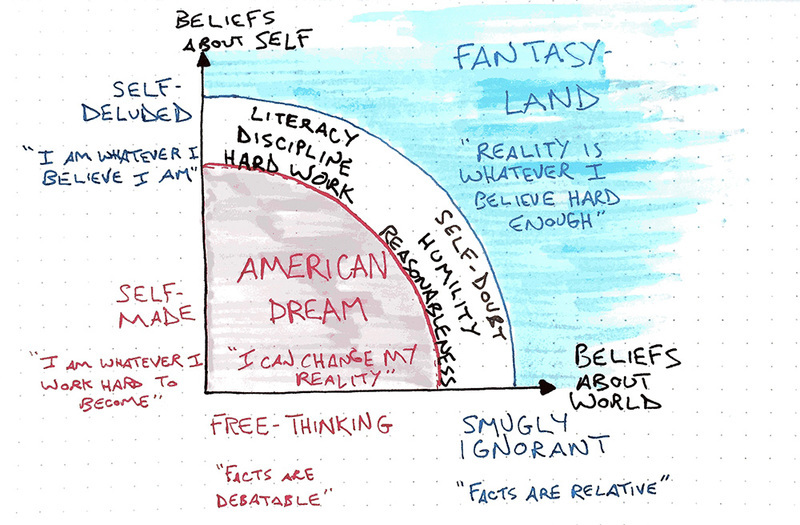 BELIEFS
ABOUT SELF
FANTASY-
LAND
"REALITY IS
WHATEVER I
BELIEVE HARD
ENOUGH"
SELF-
DELUDED
"I AM WHATEVER I
BELIEVE I AM"
LITERACY
DISCIPLINE
HARD WORK
SELF-DOUBT
HUMILITY
REASONABLENESS
AMERICAN
DREAM
"I CAN CHANGE MY
REALITY"
SELF-
MADE
"I AM WHATEVER I
WORK HARD TO
BECOME"
BELIEFS
ABOUT
WORLD
FREE-THINKING
"FACTS ARE
DEBATABLE"
SMUGLY
IGNORANT
"FACTS ARE RELATIVE"